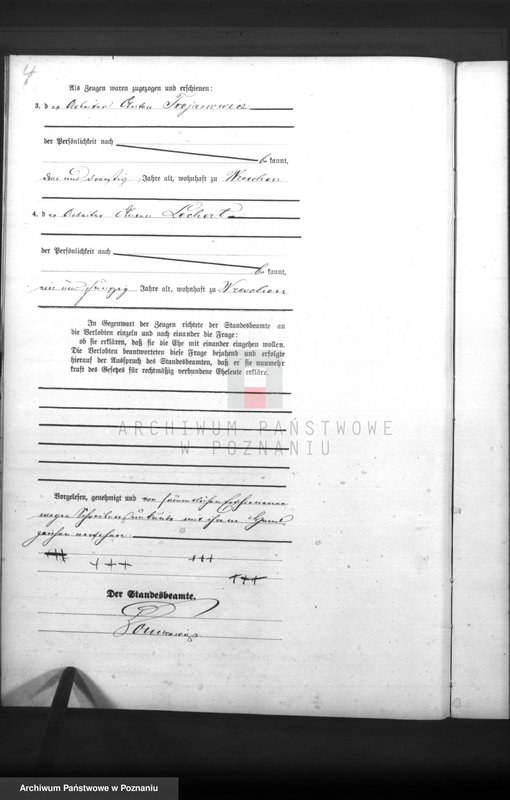 4
Als Zeugen waren zugezogen und erschienen:
3. der Arbeiter Anton Trojanowicz
der Persönlichkeit nach
be kannt,
drei und dreißig Jahre alt, wohnhaft zu Wreschen
4. der Arbeiter Lechert
der Persönlichkeit nach
be kannt,
ein und fünfzig Jahre alt, wohnhaft zu Wreschen
In Gegenwart der Zeugen richtete der Standesbeamte an
die Verlobten einzeln und nach einander die Frage:
ob sie erklären, daß sie die Ehe mit einander eingehen wollen.
Die Verlobten beantworteten diese Frage bejahend und erfolgte
hierauf der Ausspruch des Standesbeamten, daß er sie nunmehr
kraft des Gesetzes für rechtmäßig verbundene Eheleute erkläre.
ARCHIWUM PAŃSTWOWE
W POZNANIU
Vorgelesen, genehmigt und von sämmtlichen Erschienenen
wegen Schreibensunkunde mit ihrem Hand
zeichen versehen.
+++ +++
+++
+++
Der Standesbeamte.
Archiwum Państwowe w Poznaniu